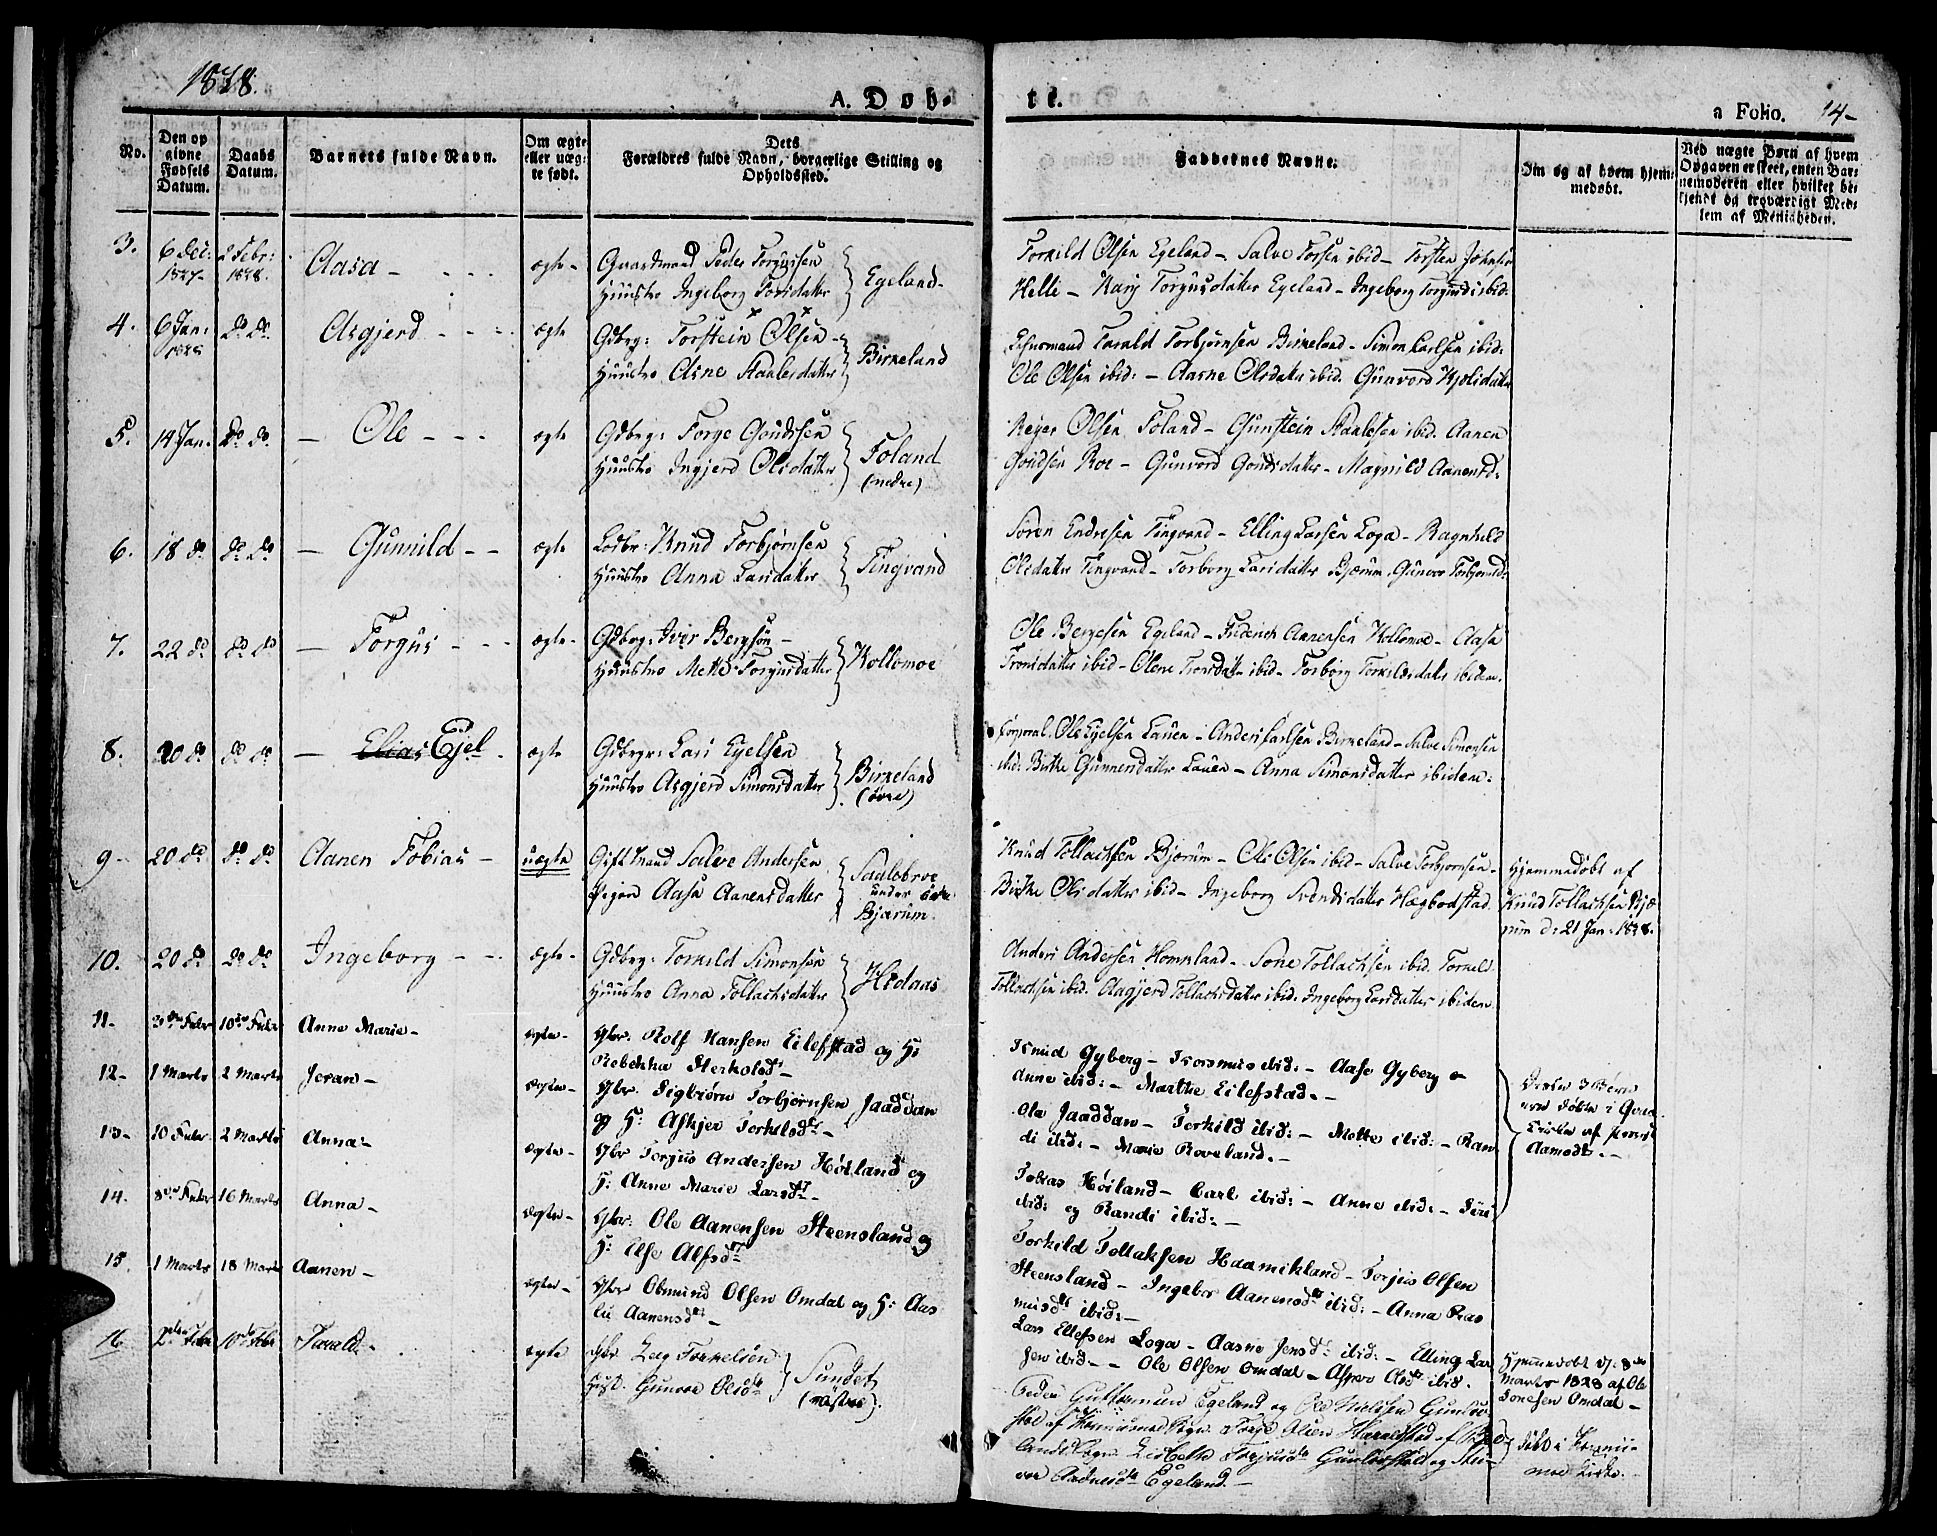 1828.
A. Døb-
te.
a Folio. 14-
No.
Den opgivne Fødsels Datum.
Daabs Datum.
Barnets fulde Navn.
Om ægte eller uægte født.
Dets Forældres fulde Navn, borgerlige Stilling og Opholdssted.
Faddernes Navne.
Om og af hvem hjemmedøbt.
Ved uægte Børn af hvem Opgaven er skeet, enten Barnemoderen eller hvilket bekjendt og troværdigt Medlem af Menigheden.
3. 6 Dec: 1827- 2 Febr: 1828. Aasa - ægte - Gaardmand Peder Torgussen
Huustro Ingeborg Torisdatter } Egeland-
Torkild Olsen Egeland - Salve Torsen ibid - Torsten Johnsen
Helle - Karij Torgusdatter Egeland - Ingeborg Torgusd: ibid:
4. 6 Jan: 1828 do do. Asgjerd - ægte Gdbrg: Torstein Olsen -
Huustro Asne Staalesdatter } Birkeland
Tarald Torbjørnsen Birkeland - Simon Carlsen ibid:
Ole Olsen ibid: - Aasne Olsdatter ibid. Gunvord
5. 14 Jan. do do. - Ole - ægte Gdbrg: Torge Goudsen
Huustro Ingjerd Olsdatter } Foland (nedre)
Reyer Olsen Foland - Gunstein Staalesen ibid. Aanen
Goudsen Roe - Gunvord Goudsdatter - Magnild Aanensd:
6. 18 do do do - Gunnild - ægte Knud Torbjørnsen
Huustro Anna Larsdatter } Tingvand
Søren Endresen Tingvand - Elling Larsen Loga - Ragnhild
Olsdatter Tingvand - Torborg Larsdatter Bjærum. Gunvor Torbjørnsd:
7. 22 do do do - Torgus - ægte - Gdbrg: Iver Bergsøn -
Huustro Mette Torgusdatter } Kollomoe
Ole Bergesen Egeland - Friderich Aanensen Kollomoe - Aasa
Tronsdatter ibid - Olene Tronsdatter ibid - Torborg Torkildsdatter ibidem.
8. 20 do do do - Elias Ejel - ægte Gdbrgr: Lars Eyelsen
Huustro Asgjerd Simonsdatter } Birkeland (øvre)
Corporal Ole Eyelsen Lauen - Anders Carlsen Birkeland - Salve Simonsen
ibid: Birthe Gunnersdatter Lauen - Anna Simonsdatter ibidem:
9- 20 do do do Aanen Tobias - uægte Gift Mand Salve Andersen
Pigen Aasa Aanensdatter } Saalebroe under Bjærum.
Knud Tollachsen Bjærum - Ole Olsen ibid - Salve Torbjørnsen -
Birthe Olsdatter ibid - Ingeborg Svendsdatter Hægbodstad.
Hjemmedøbt af
Knud Tollachsen Bjæ-
rum d: 21 Jan: 1828.
10. 20 do do do Ingeborg - ægte - Gdbrg: Torkild Simonsen
Huustro Anna Tollachsdatter } Hedaas
Anders Andersen Hommland - Sone Tollachsen ibid. Torkild
Tollachsen ibid. Aagjerd Tollachsdatter ibid. Ingeborg Larsdatter ibidem
11- 3die Febr 10de Febr Anne Marie - ægte - Gbr: Rolf Hansen Eilefstad og H:
Rebekka Sterkolsd: -
Knud Gyberg - Rasmus ibid: - Aase Gyberg -
Anne ibid: - Marthe Eilefstad. -
Disse 3 Børn
ere døbte i
Kirke af
Aamodt. -
12- 1 Marts 2 Marts Joran - ægte - Gbr. Sigbiørn Torbjørnsen Jaaddan
og H: Askjer Torkelsdtr -
Ole Jaaddan - Torkild ibid: - Mette ibid: - Ran-
di ibid: - Marie Roveland. -
13- 10 Febr 2 Marts Anna - ægte - Gbr Torjus Andersen Høiland og
H: Anne Marie Larsdtr -
Tobias Høiland - Carl ibid: - Anne ibid: - Siri
ibid: og Randi ibid: -
14. 8de Febr 16 Marts Anna - ægte - Gbr: Ole Aanensen Steensland og
H: Else Alfsdtr
Torkild Tollaksen Haamikland - Torjus Olsen
Steensland - Ingebor Aanensdtr ibid: - Anna Ras-
musdtr ibid: -
15. 1 Marts 18 Marts Aanen - ægte - Gbr Osmund Olsen Omdal og H: Aas-
lu Aanensdtr -
Lars Ellefsen Loga - Aasne Jensdtr ibid: - Elling Lar-
sen ibid - - Ole Olsen Omdal - Olsdtr ibid.
Hjemmedøbt d: 8de
Marts 1828 af Ole
Sonesen Omdal -
16 2den Febr 10de Febr Tarald - ægte Gbr. Torkelsen
Hust. Gunvor Olsdtr } Sundet (næstne).
Peder Guttormsen Egeland og Ole Nielsen Gunlev-
stad af Sogn. Torje Olsen Haraldstad af
lands Sogn. Lisbeth Torjusdtr Gunlevstad og
Egeland. -
døbt i
mod Kirke.